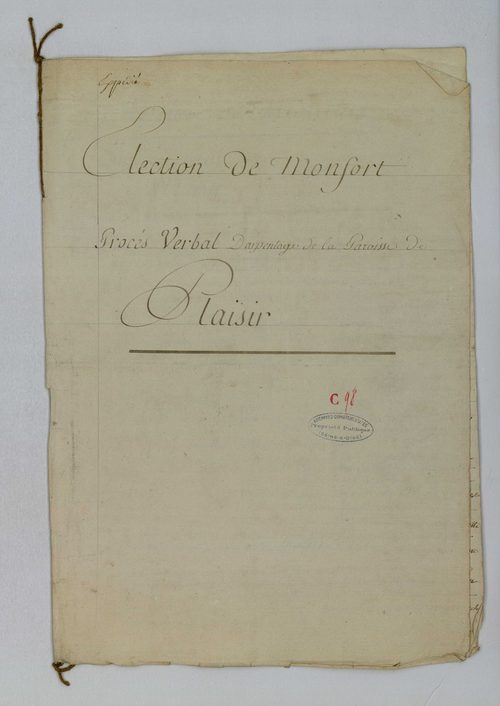 Expédié
Election De Monfort
Procés Verbal D'arpentage de la Paroisse De
Plaisir
C 98
ARCHIVES DÉPARTEMENTALES
Propriété Publique
(SEINE-&-OISE)